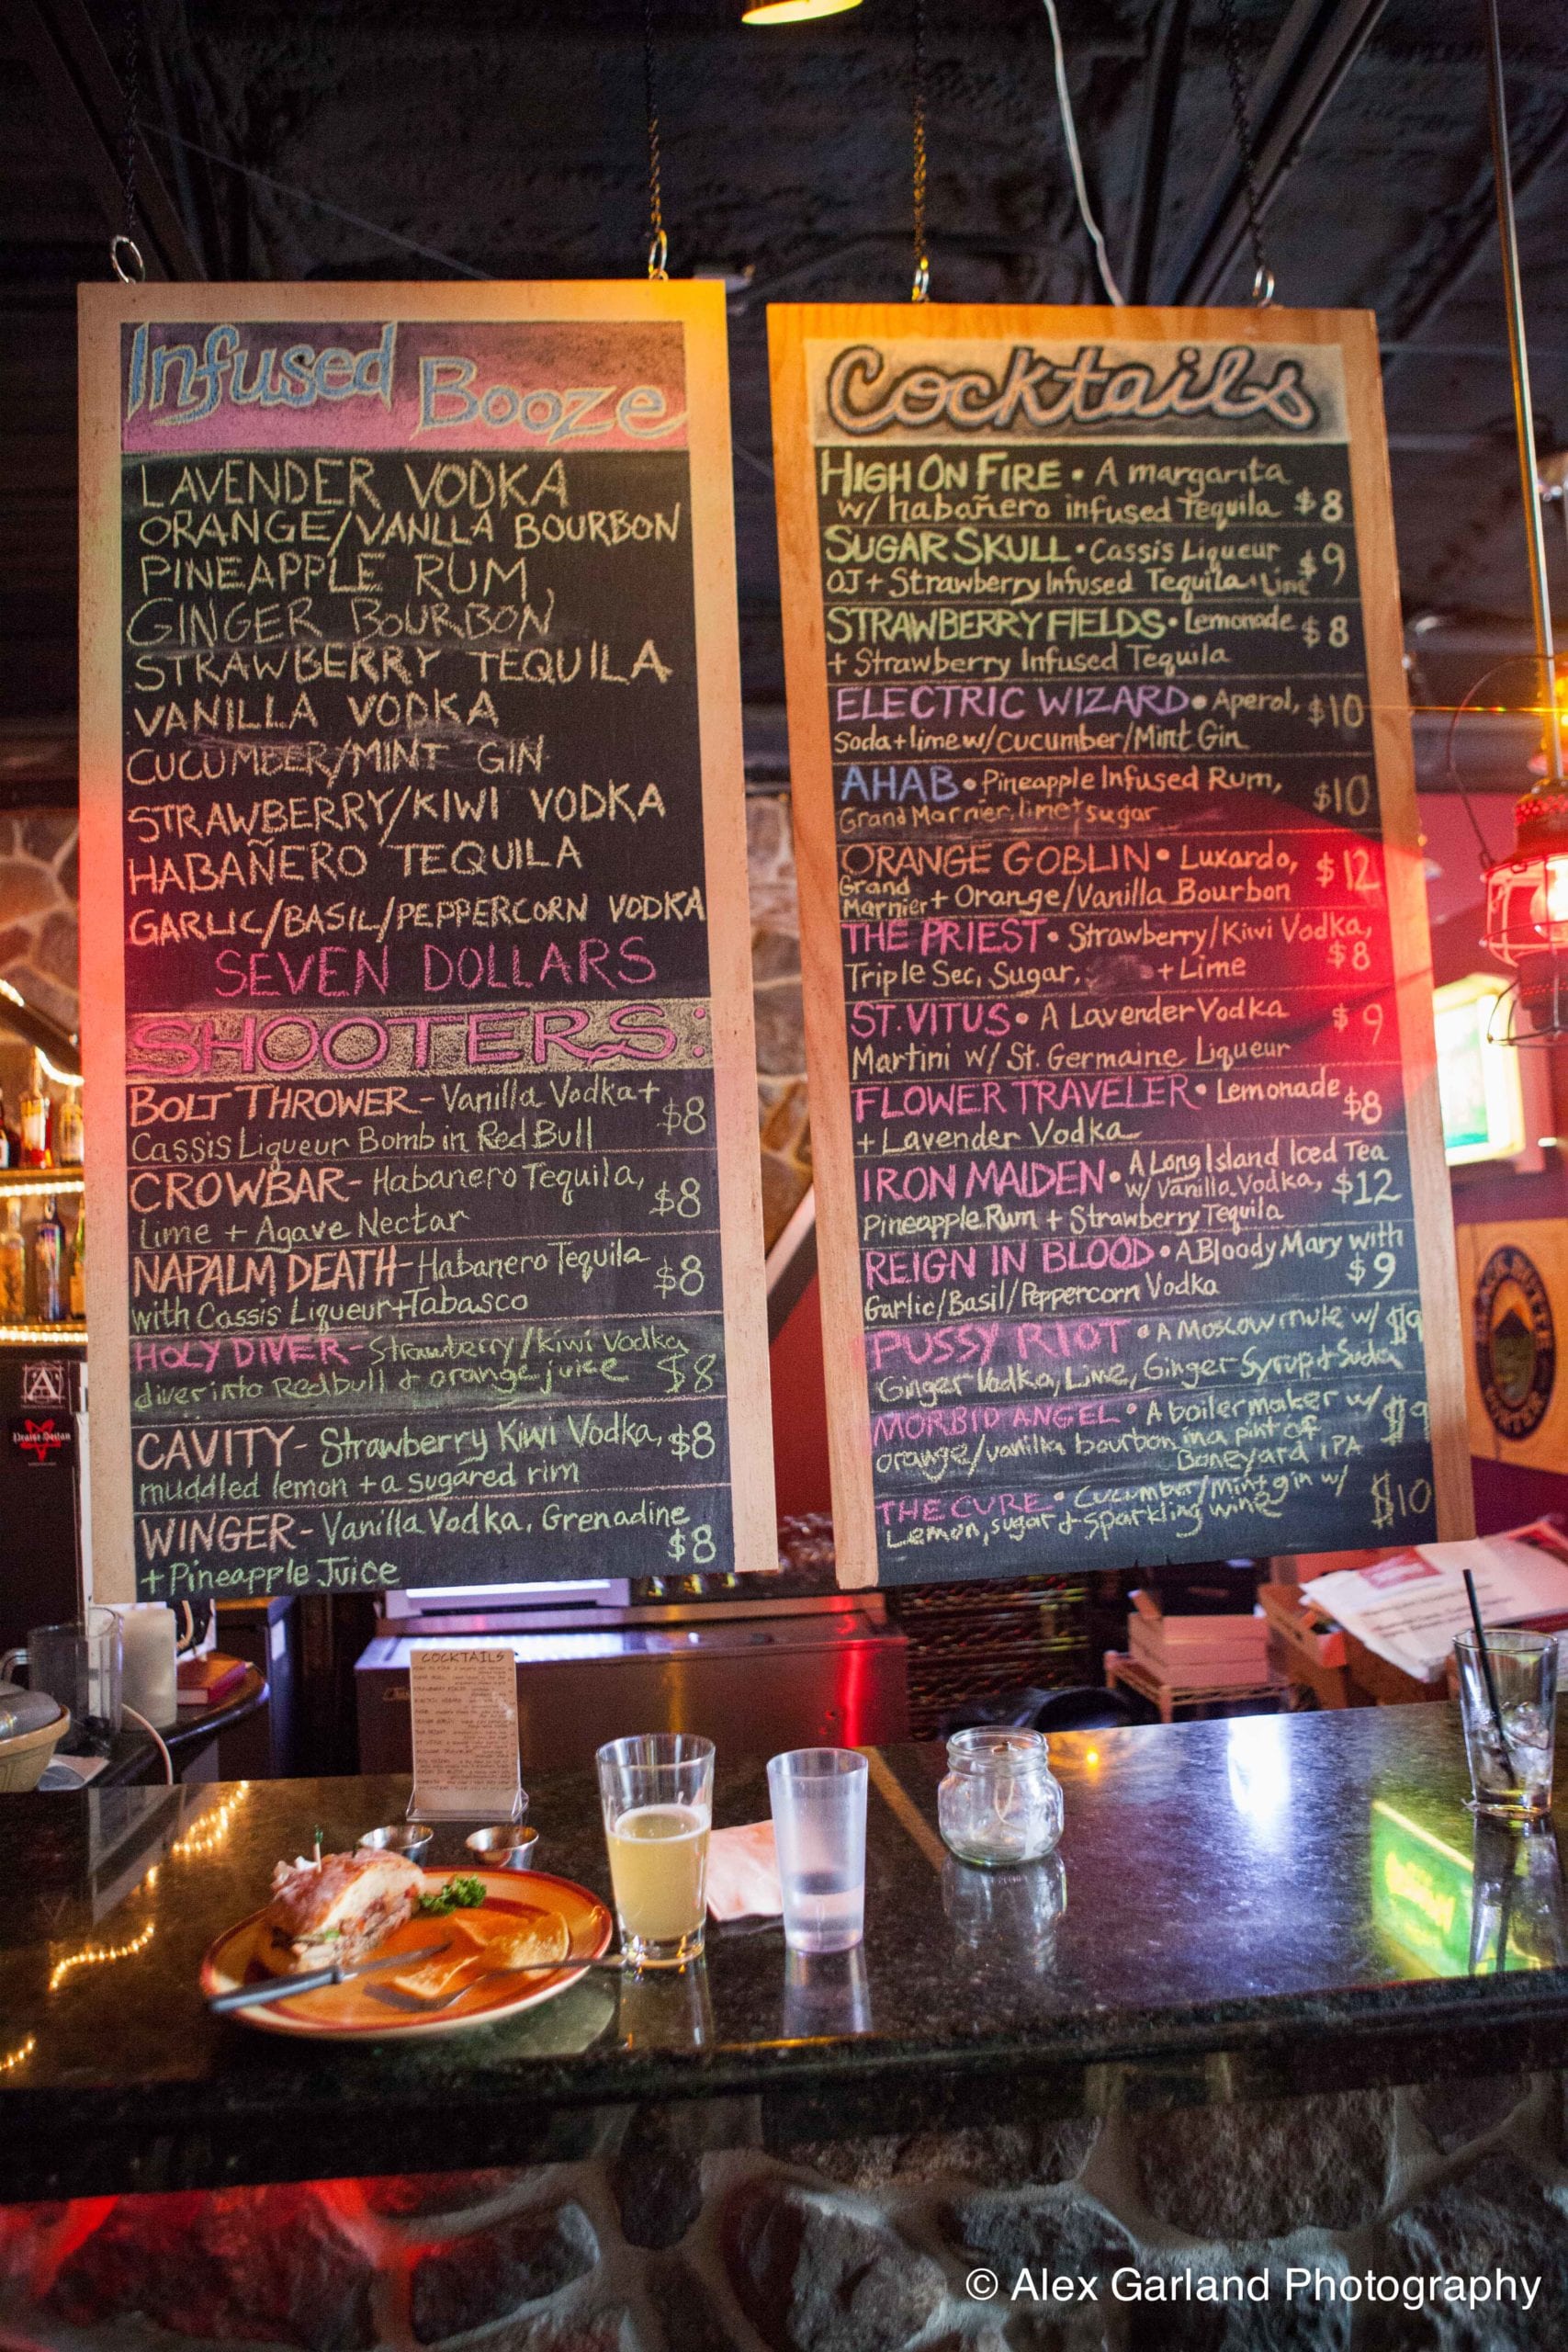 Infused Booze
LAVENDER VODKA
ORANGE/VANLLA BOURBON
PINEAPPLE RUM
GINGER BOURBON
STRAWBERRY TEQUILA
VANILLA VODKA
CUCUMBER/MINT GIN
STRAWBERRY/KIWI VODKA
HABAÑERO TEQUILA
GARLIC/BASIL/PEPPERCORN VODKA
SEVEN DOLLARS
SHOOTERS:
BOLT THROWER - Vanilla Vodka +
Cassis Liqueur Bomb in Red Bull $8
CROWBAR - Habanero Tequila,
lime + Agave Nectar $8
NAPALM DEATH - Habanero Tequila
with Cassis Liqueur + Tabasco $8
HOLY DIVER - Strawberry/kiwi vodka
diver into Redbull & orange juice $8
CAVITY - Strawberry Kiwi Vodka, $8
muddled lemon + a sugared rim
WINGER - Vanilla Vodka, Grenadine
+ Pineapple Juice $8
Cocktails
HIGH ON FIRE • A margarita
w/ habañero infused Tequila $8
SUGAR SKULL • Cassis Liqueur, $9
OJ + Strawberry Infused Tequila + Lime
STRAWBERRY FIELDS • Lemonade $8
+ Strawberry Infused Tequila
ELECTRIC WIZARD • Aperol, $10
Soda + lime w/ Cucumber/Mint Gin
AHAB • Pineapple Infused Rum, $10
Grand Marnier, lime + sugar
ORANGE GOBLIN • Luxardo, $12
Grand Marnier + Orange/Vanilla Bourbon
THE PRIEST • Strawberry/Kiwi Vodka,
Triple Sec, Sugar, + Lime $8
ST. VITUS • A Lavender Vodka $9
Martini w/ St. Germaine Liqueur
FLOWER TRAVELER • Lemonade $8
+ Lavender Vodka
IRON MAIDEN • A Long Island Iced Tea
w/ Vanilla Vodka, $12
Pineapple Rum + Strawberry Tequila
REIGN IN BLOOD • A Bloody Mary with
Garlic/Basil/Peppercorn Vodka $9
PUSSY RIOT • A Moscow mule w/ $9
Ginger Vodka, Lime, Ginger Syrup & Soda
MORBID ANGEL • A boilermaker w/ $9
orange/vanilla bourbon in a pint of
Boneyard IPA
THE CURE • Cucumber/mint gin w/ $10
Lemon, sugar & Sparkling wine
Praise Seitan
COCKTAILS
© Alex Garland Photography